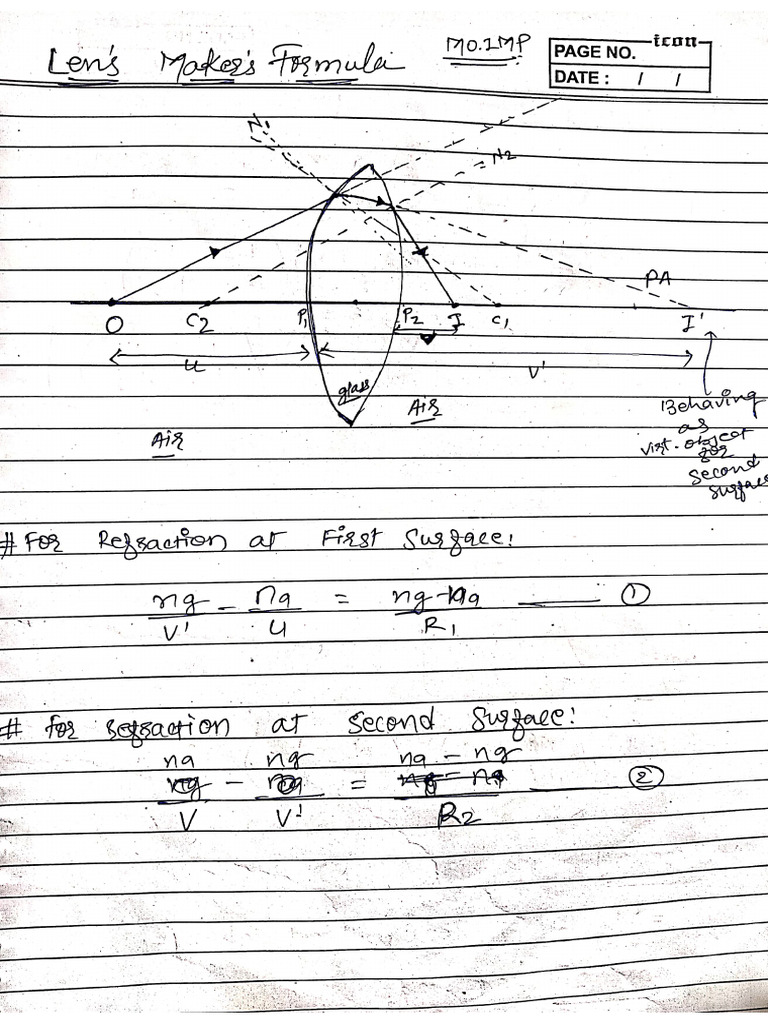 Len's Maker's Formula
MO.IMP
icon
PAGE NO.
DATE : / /
N1
N2
PA
O C2 P1 P2 I C1 I'
V
u
V'
glass
Air
Air
Behaving
as
virt. object
for
second
surface
# For Refraction at First Surface:
ng/V' - na/u = ng-na/R1 ——— ①
# for refraction at second surface:
na/V - ng/V' = na - ng/R2 ——— ②